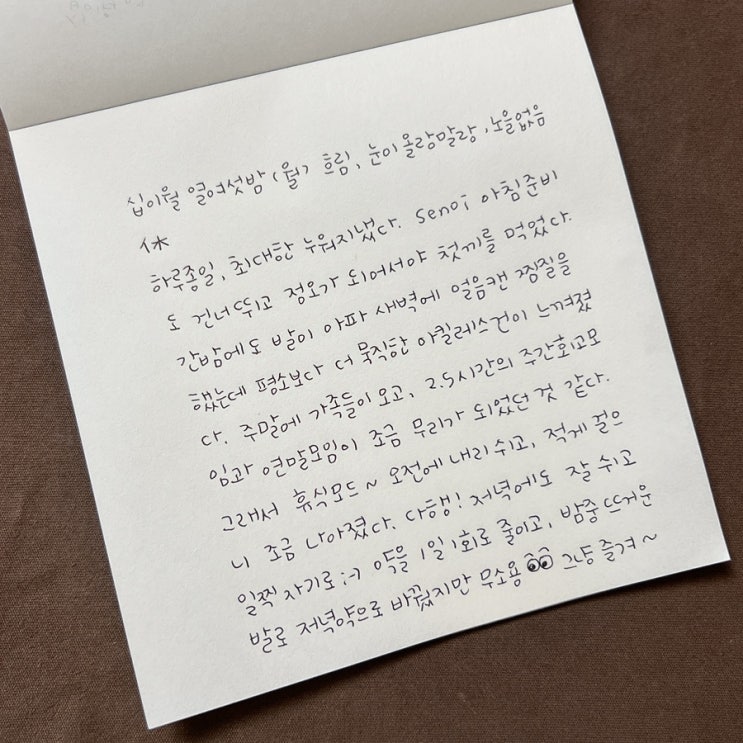 십이월 열여섯밤 (월) 흐림, 눈이올랑말랑, 노을없음
休
하루종일, 최대한 누워지냈다. Senoi 아침준비
도 건너뛰고 정오가 되어서야 첫끼를 먹었다.
간밤에도 발이 아파 새벽에 얼음캔 찜질을
했는데 평소보다 더 묵직한 아킬레스건이 느껴졌
다. 주말에 가족들이 오고, 2.5시간의 주간회고모
임과 연말모임이 조금 무리가 되었던 것 같다.
그래서 휴식모드~ 오전에 내리 쉬고, 적게 걸으
니 조금 나아졌다. 다행! 저녁에도 잘 쉬고
일찍 자기로 :-) 약을 1일 1회로 줄이고, 밤중 뜨거운
발로 저녁약으로 바꿨지만 무소용 그냥 즐겨~